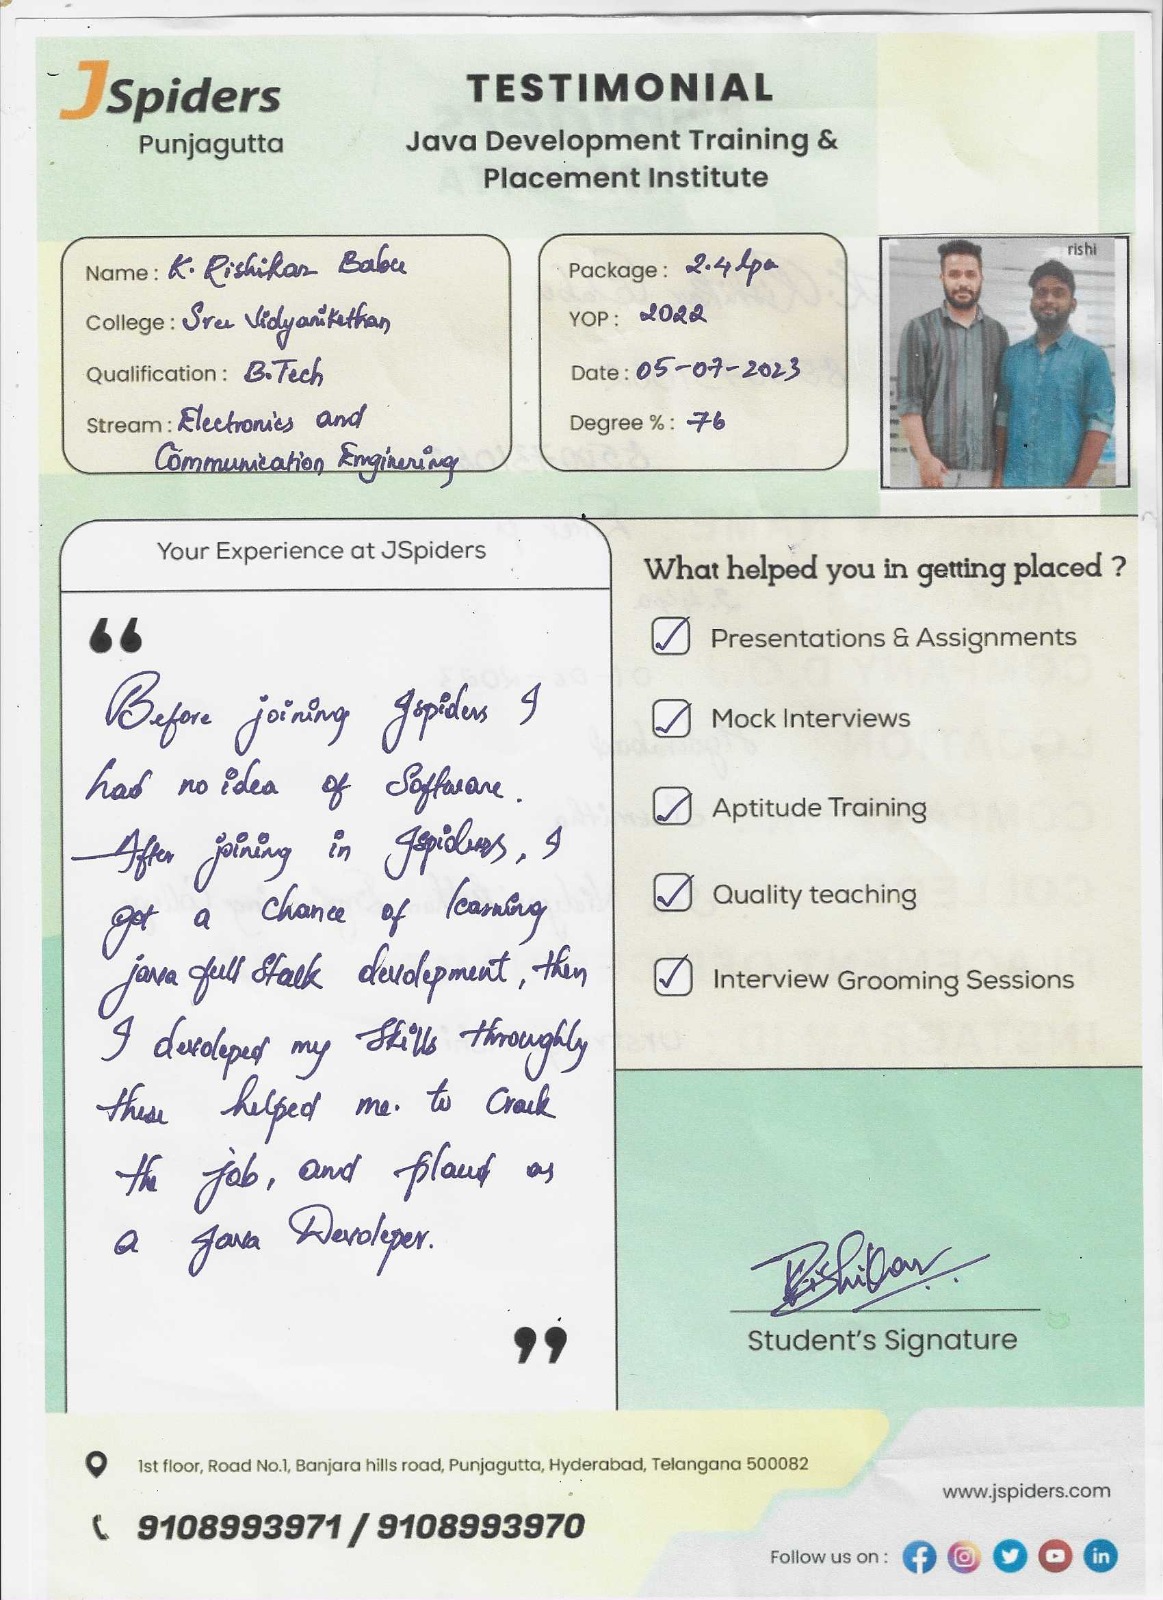 JSpiders
Punjagutta
TESTIMONIAL
Java Development Training &
Placement Institute
Name : K. Rishikar Babu
College : Sree Vidyanikethan
Qualification : B.Tech
Stream : Electronics and
Communication Enginering
Package : 2.4 lpa
YOP : 2022
Date : 05-07-2023
Degree % : 76
rishi
Your Experience at JSpiders
“
Before joining Jspiders I
had no idea of Software.
After joining in Jspiders, I
got a chance of learning
java full Stack
development, then
I devoleped my Skills throughly
these helped me. to Crack
the job, and placed as
a Java Devoleper.
”
What helped you in getting placed ?
Presentations & Assignments
Mock Interviews
Aptitude Training
Quality teaching
Interview Grooming Sessions
Rishikar
Student's Signature
1st floor, Road No.1, Banjara hills road, Punjagutta, Hyderabad, Telangana 500082
9108993971 / 9108993970
www.jspiders.com
Follow us on :